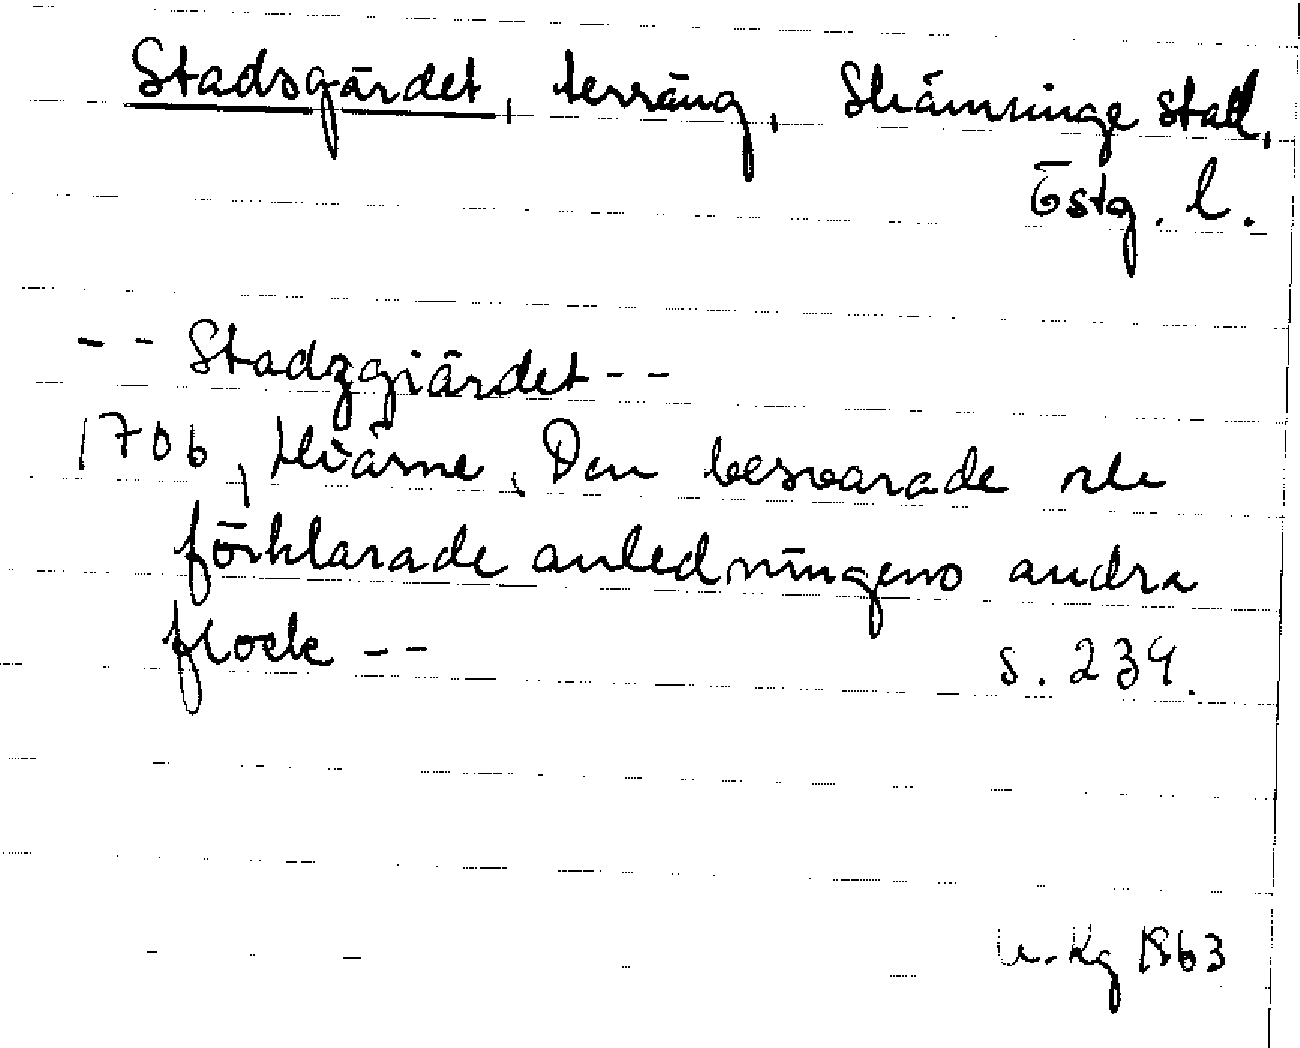 Stadsgärdet, terräng, Skänninge stad,
Östg. l.
-- Stadzgiärdet --
1706, Hiärne, Den besvarade och
förklarade anledningens andra
flock -- s. 234.
Kg 1963